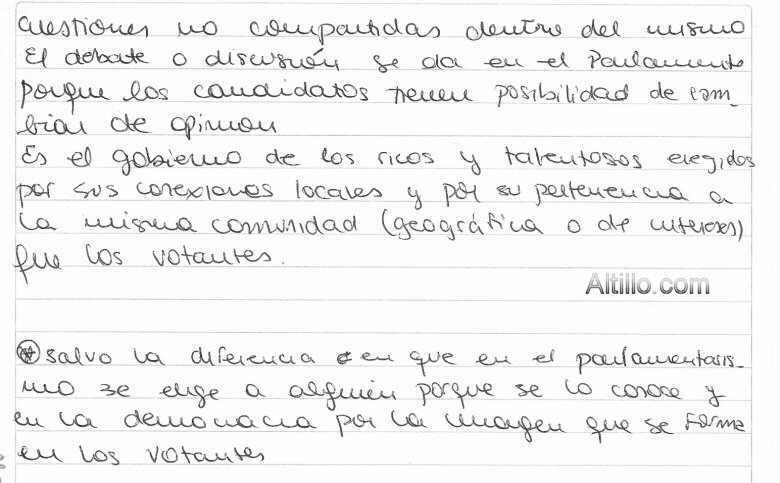 cuestiones no compartidas dentro del mismo
El debate o discusión se da en el Parlamento
porque los candidatos tienen posibilidad de cam-
biar de opinion
Es el gobierno de los ricos y talentosos elegidos
por sus conexiones locales y por su pertenencia a
la misma comunidad (geográfica o de intereses)
que los votantes.
Altillo.com
* salvo la diferencia en que en el parlamentaris-
mo se elige a alguien porque se lo conoce y
en la democracia por la imagen que se forma
en los votantes